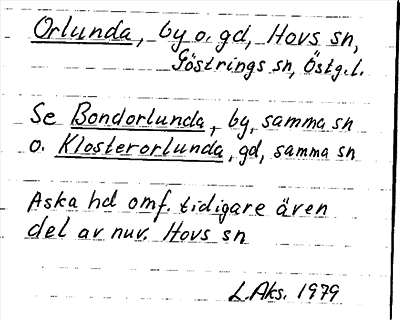 Orlunda, by o. gd, Hovs sn,
Göstrings sn, Östg.l.
Se Bondorlunda, by, samma sn
o. Klosterorlunda, gd, samma sn
Aska hd omf. tidigare även
del av nuv. Hovs sn
L.Aks. 1979